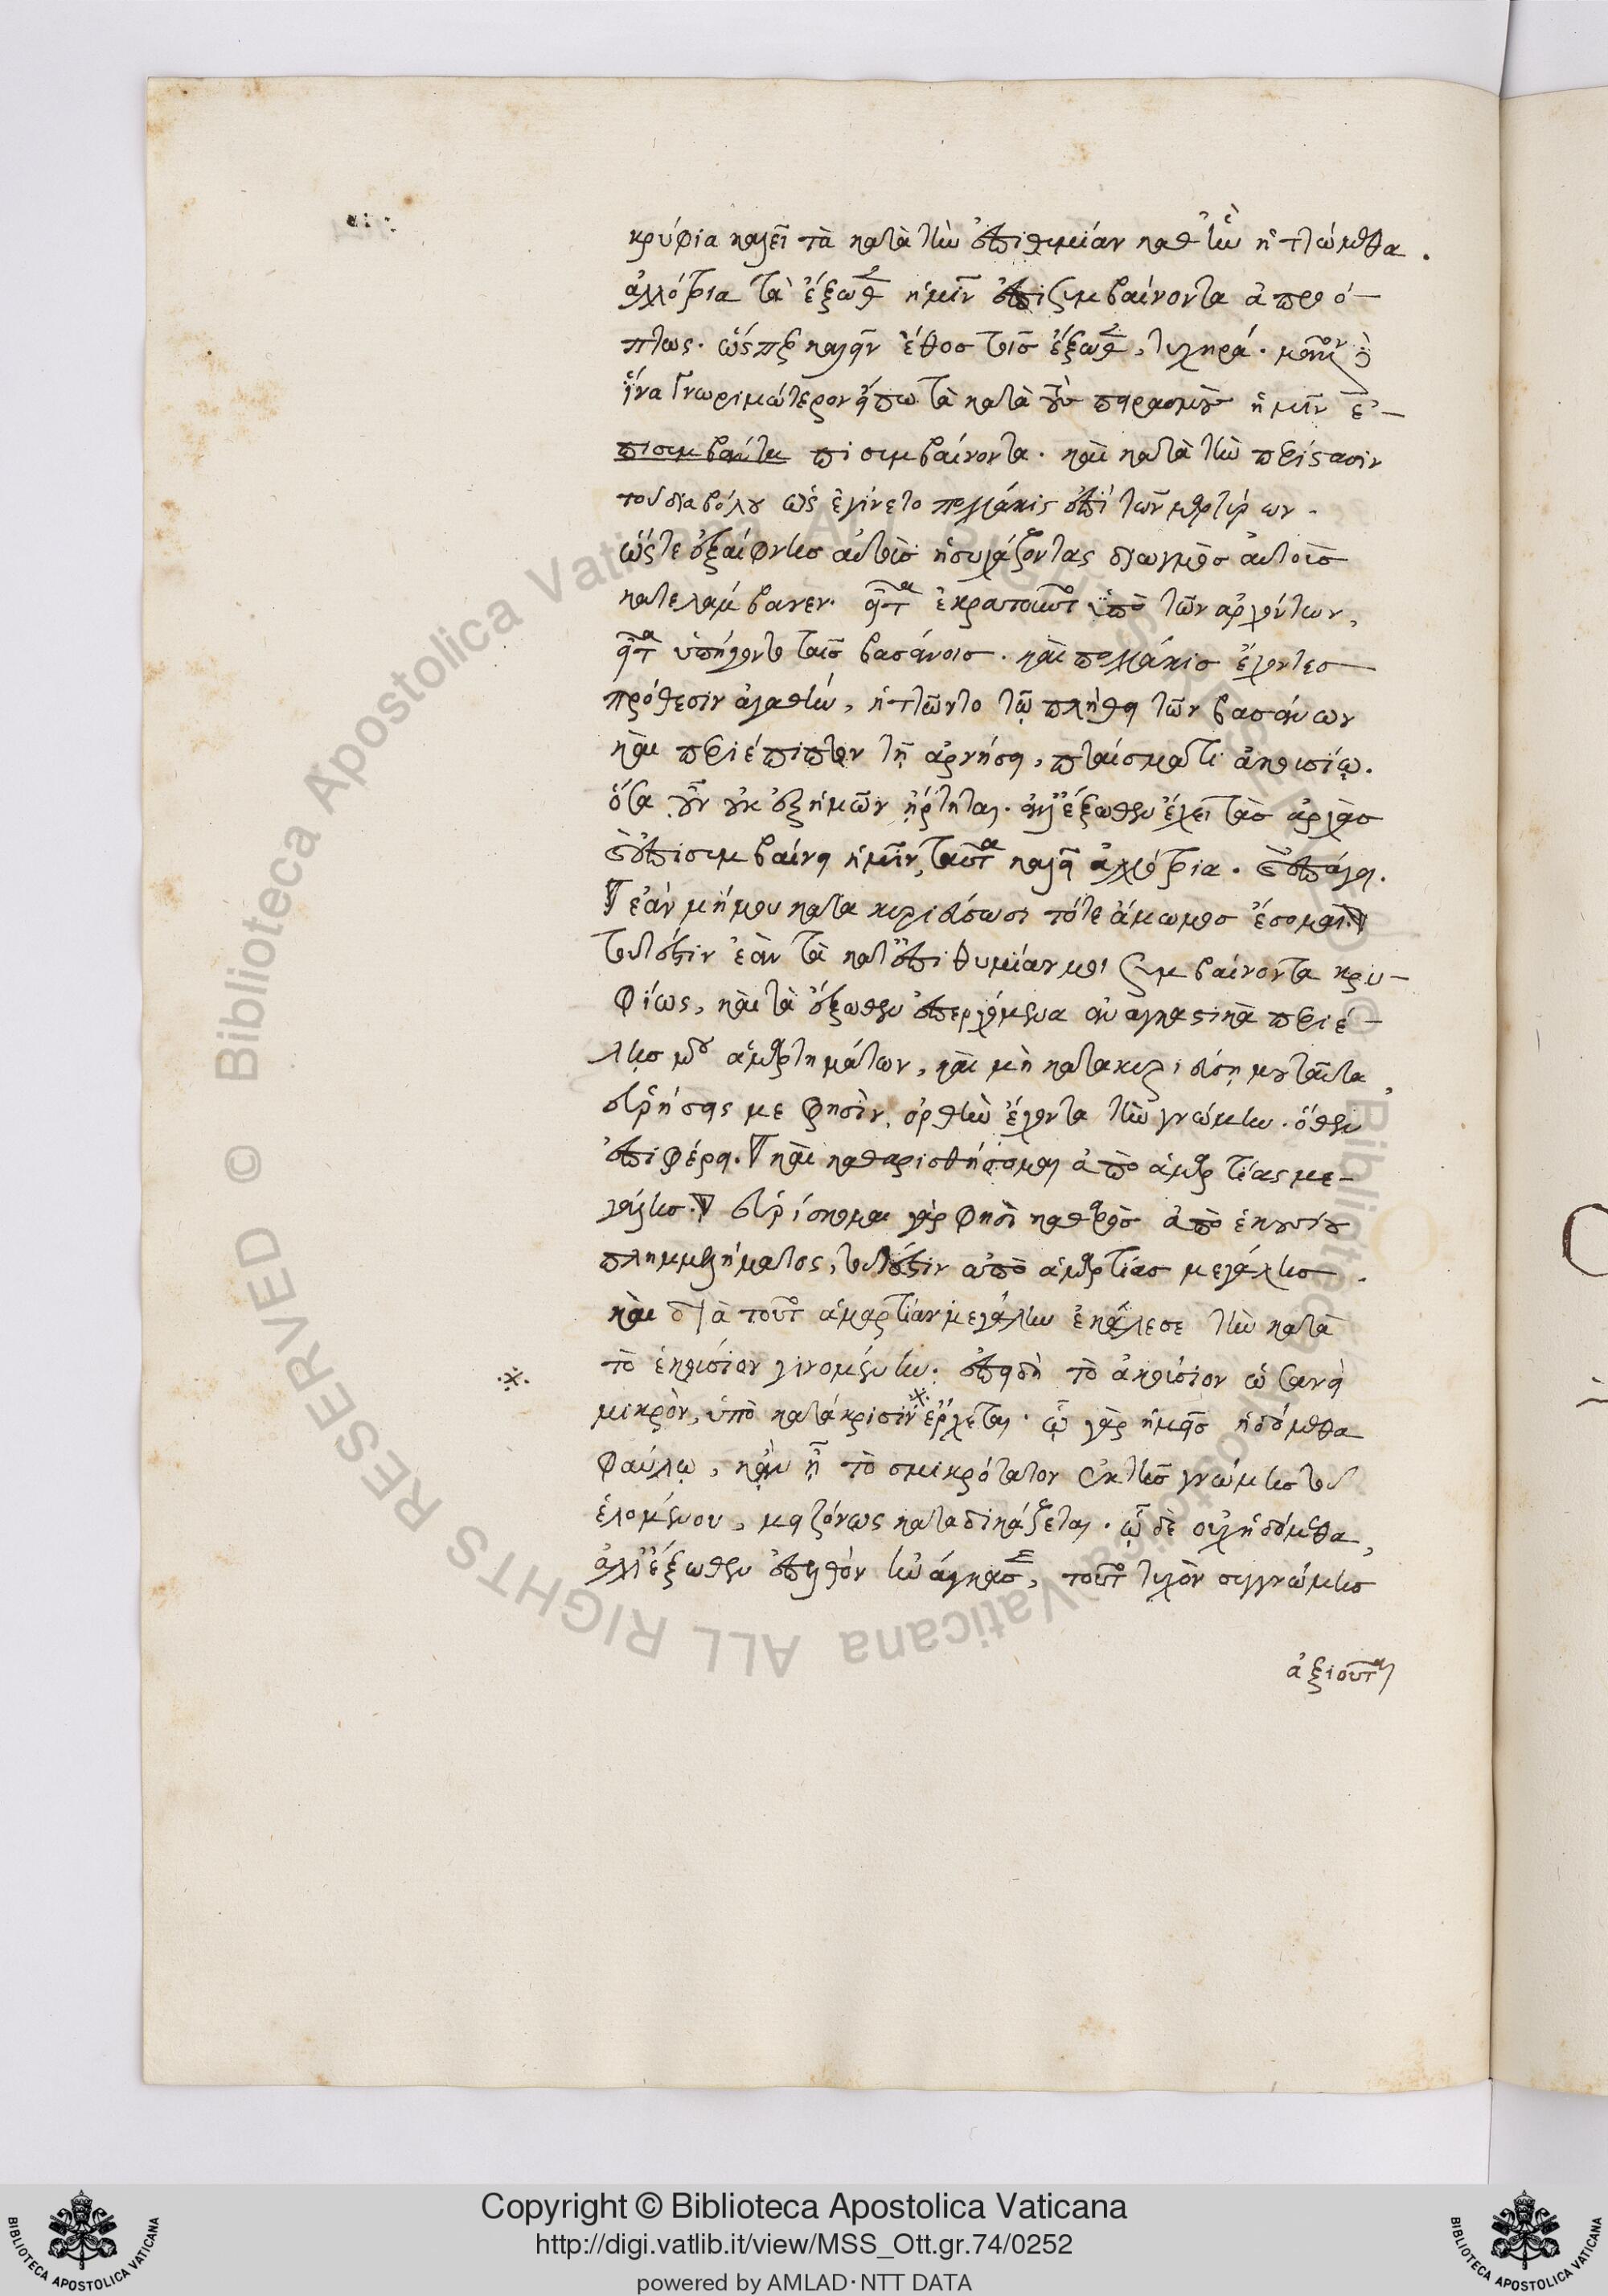 κρύφια καλεῖ τὰ κατὰ τὴν ἐπιθυμίαν καθ' ἣν ἡττώμεθα.
ἀλλότρια τὰ ἔξωθεν ἡμῖν ἐπισυμβαίνοντα ἀπροό-
πτως. ὥσπερ καλεῖν ἔθος τοῖς ἔξωθεν, τυχηρά.
ἵνα γνωριμώτερον εἴπω τὰ κατὰ τοὺς πειρασμοὺς ἡμῖν ἐ-
πισυμβαίνοντα πισυμβαίνοντα. καὶ κατὰ τὴν περίστασιν
τοῦ διαβόλου ὡς ἐγίνετο πολλάκις ἐπὶ τῶν μαρτύρων.
ὥστε ἐξαίφνης αὐτοὺς ἡσυχάζοντας διωγμὸς αὐτοὺς
κατελάμβανεν. εἶτα ἐκρατοῦντο ὑπὸ τῶν ἀρχόντων,
εἶτα ὑπήγοντο ταῖς βασάνοις. καὶ πολλάκις ἔχοντες
πρόθεσιν ἀγαθὴν, ἡττῶντο τῷ πλήθει τῶν βασάνων
καὶ περιέπιπτον τῇ ἀρνήσει, πταίσματι ἀκουσίῳ.
ὅσα οὖν οὐκ ἐξ ἡμῶν ἤρτηται. ἀλλ' ἔξωθεν ἔχει τὰς ἀρχὰς
καὶ ἐπισυμβαίνει ἡμῖν, ταῦτα καλεῖ ἀλλότρια. καὶ ἐπάγει.
ἐὰν μή μου κατακυριεύσωσι τότε ἄμωμος ἔσομαι.
τουτέστιν ἐὰν τὰ κατ' ἐπιθυμίαν μοι συμβαίνοντα κρυ-
φίως, καὶ τὰ ἔξωθεν ἐπερχόμενα ἀναγκαστικὰ περιέ-
λῃς μου ἁμαρτημάτων, καὶ μὴ κατακυριεύσῃ μου ταῦτα,
εὑρήσεις με φησὶν, ὀρθὴν ἔχοντα τὴν γνώμην. ὅθεν
ἐπιφέρει. καὶ καθαρισθήσομαι ἀπὸ ἁμαρτίας με-
γάλης. εὑρίσκομαι γὰρ φησὶ καθαρὸς ἀπὸ ἑκουσίου
πλημμελήματος, τουτέστιν ἀπὸ ἁμαρτίας μεγάλης.
καὶ διὰ τοῦτο ἁμαρτίαν μεγάλην ἐκάλεσε τὴν κατὰ
τὸ ἑκούσιον γινομένην. ἐπειδὴ τὸ ἀκούσιον ὡσανεὶ
μικρὸν, ὑπὸ κατάκρισιν ἔρχεται. ᾧ γὰρ ἡμεῖς ἡδόμεθα
φαύλῳ, κἂν ᾖ τὸ σμικρότατον ἐκ τῆς γνώμης τοῦ
ἑλομένου, μειζόνως καταδικάζεται. ᾧ δὲ οὐχ ἡδόμεθα,
ἀλλ' ἔξωθεν ἐπελθὸν ἠνάγκασε, τοῦτο τυχὸν συγγνώμης
ἀξιοῦται
Copyright © Biblioteca Apostolica Vaticana
http://digi.vatlib.it/view/MSS_Ott.gr.74/0252
powered by AMLAD·NTT DATA